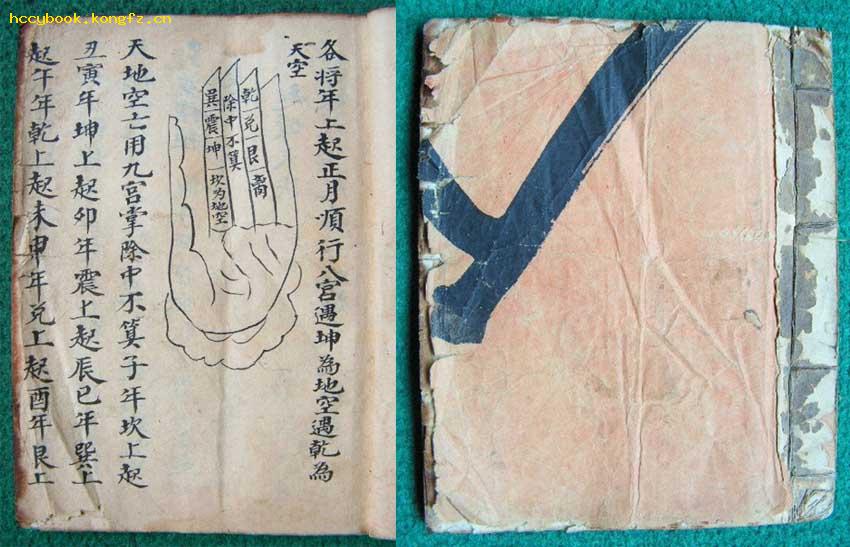 hccybook.kongfz.cn
各将年上起正月順行八宮遇坤為地空遇乾為
天空
乾兌艮离
除中不算
巽震坤
坎为地空
天地空亡用九宮掌除中不算子年坎上起
丑寅年坤上起卯年震上起辰巳年巽上
起午年乾上起未申年兌上起酉年艮上